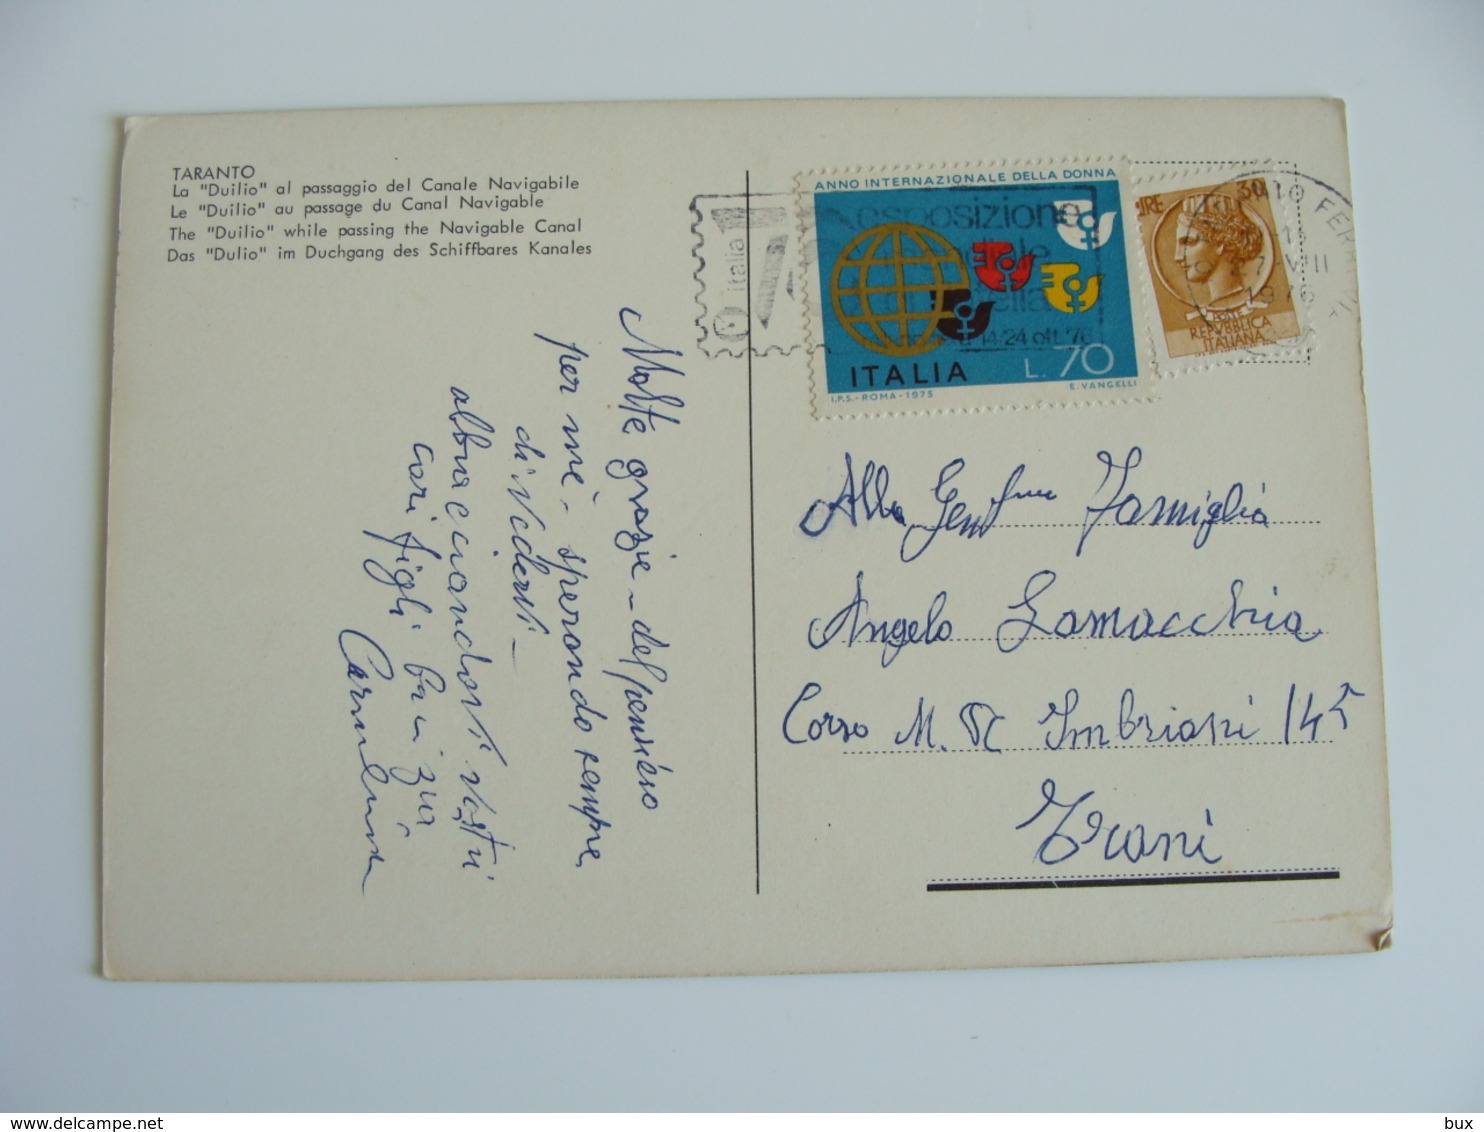 TARANTO
La "Duilio" al passaggio del Canale Navigabile
Le "Duilio" au passage du Canal Navigable
The "Duilio" while passing the Navigable Canal
Das "Dulio" im Duchgang des Schiffbares Kanales
Molte grazie - del pensiero
per me - sperando sempre
di vedervi -
abbracciandovi vostri
cari figli
Carmelina
italia
esposizione
14/24 ott. '76
ANNO INTERNAZIONALE DELLA DONNA
ITALIA L.70
I.P.S.-ROMA-1975 E. VANGELLI
LIRE 30
REPVBBLICA
ITALIANA
1976
Alla Gent.ma Famiglia
Angelo Lamacchia
Corso M. R. Imbriani 145
Trani
bux